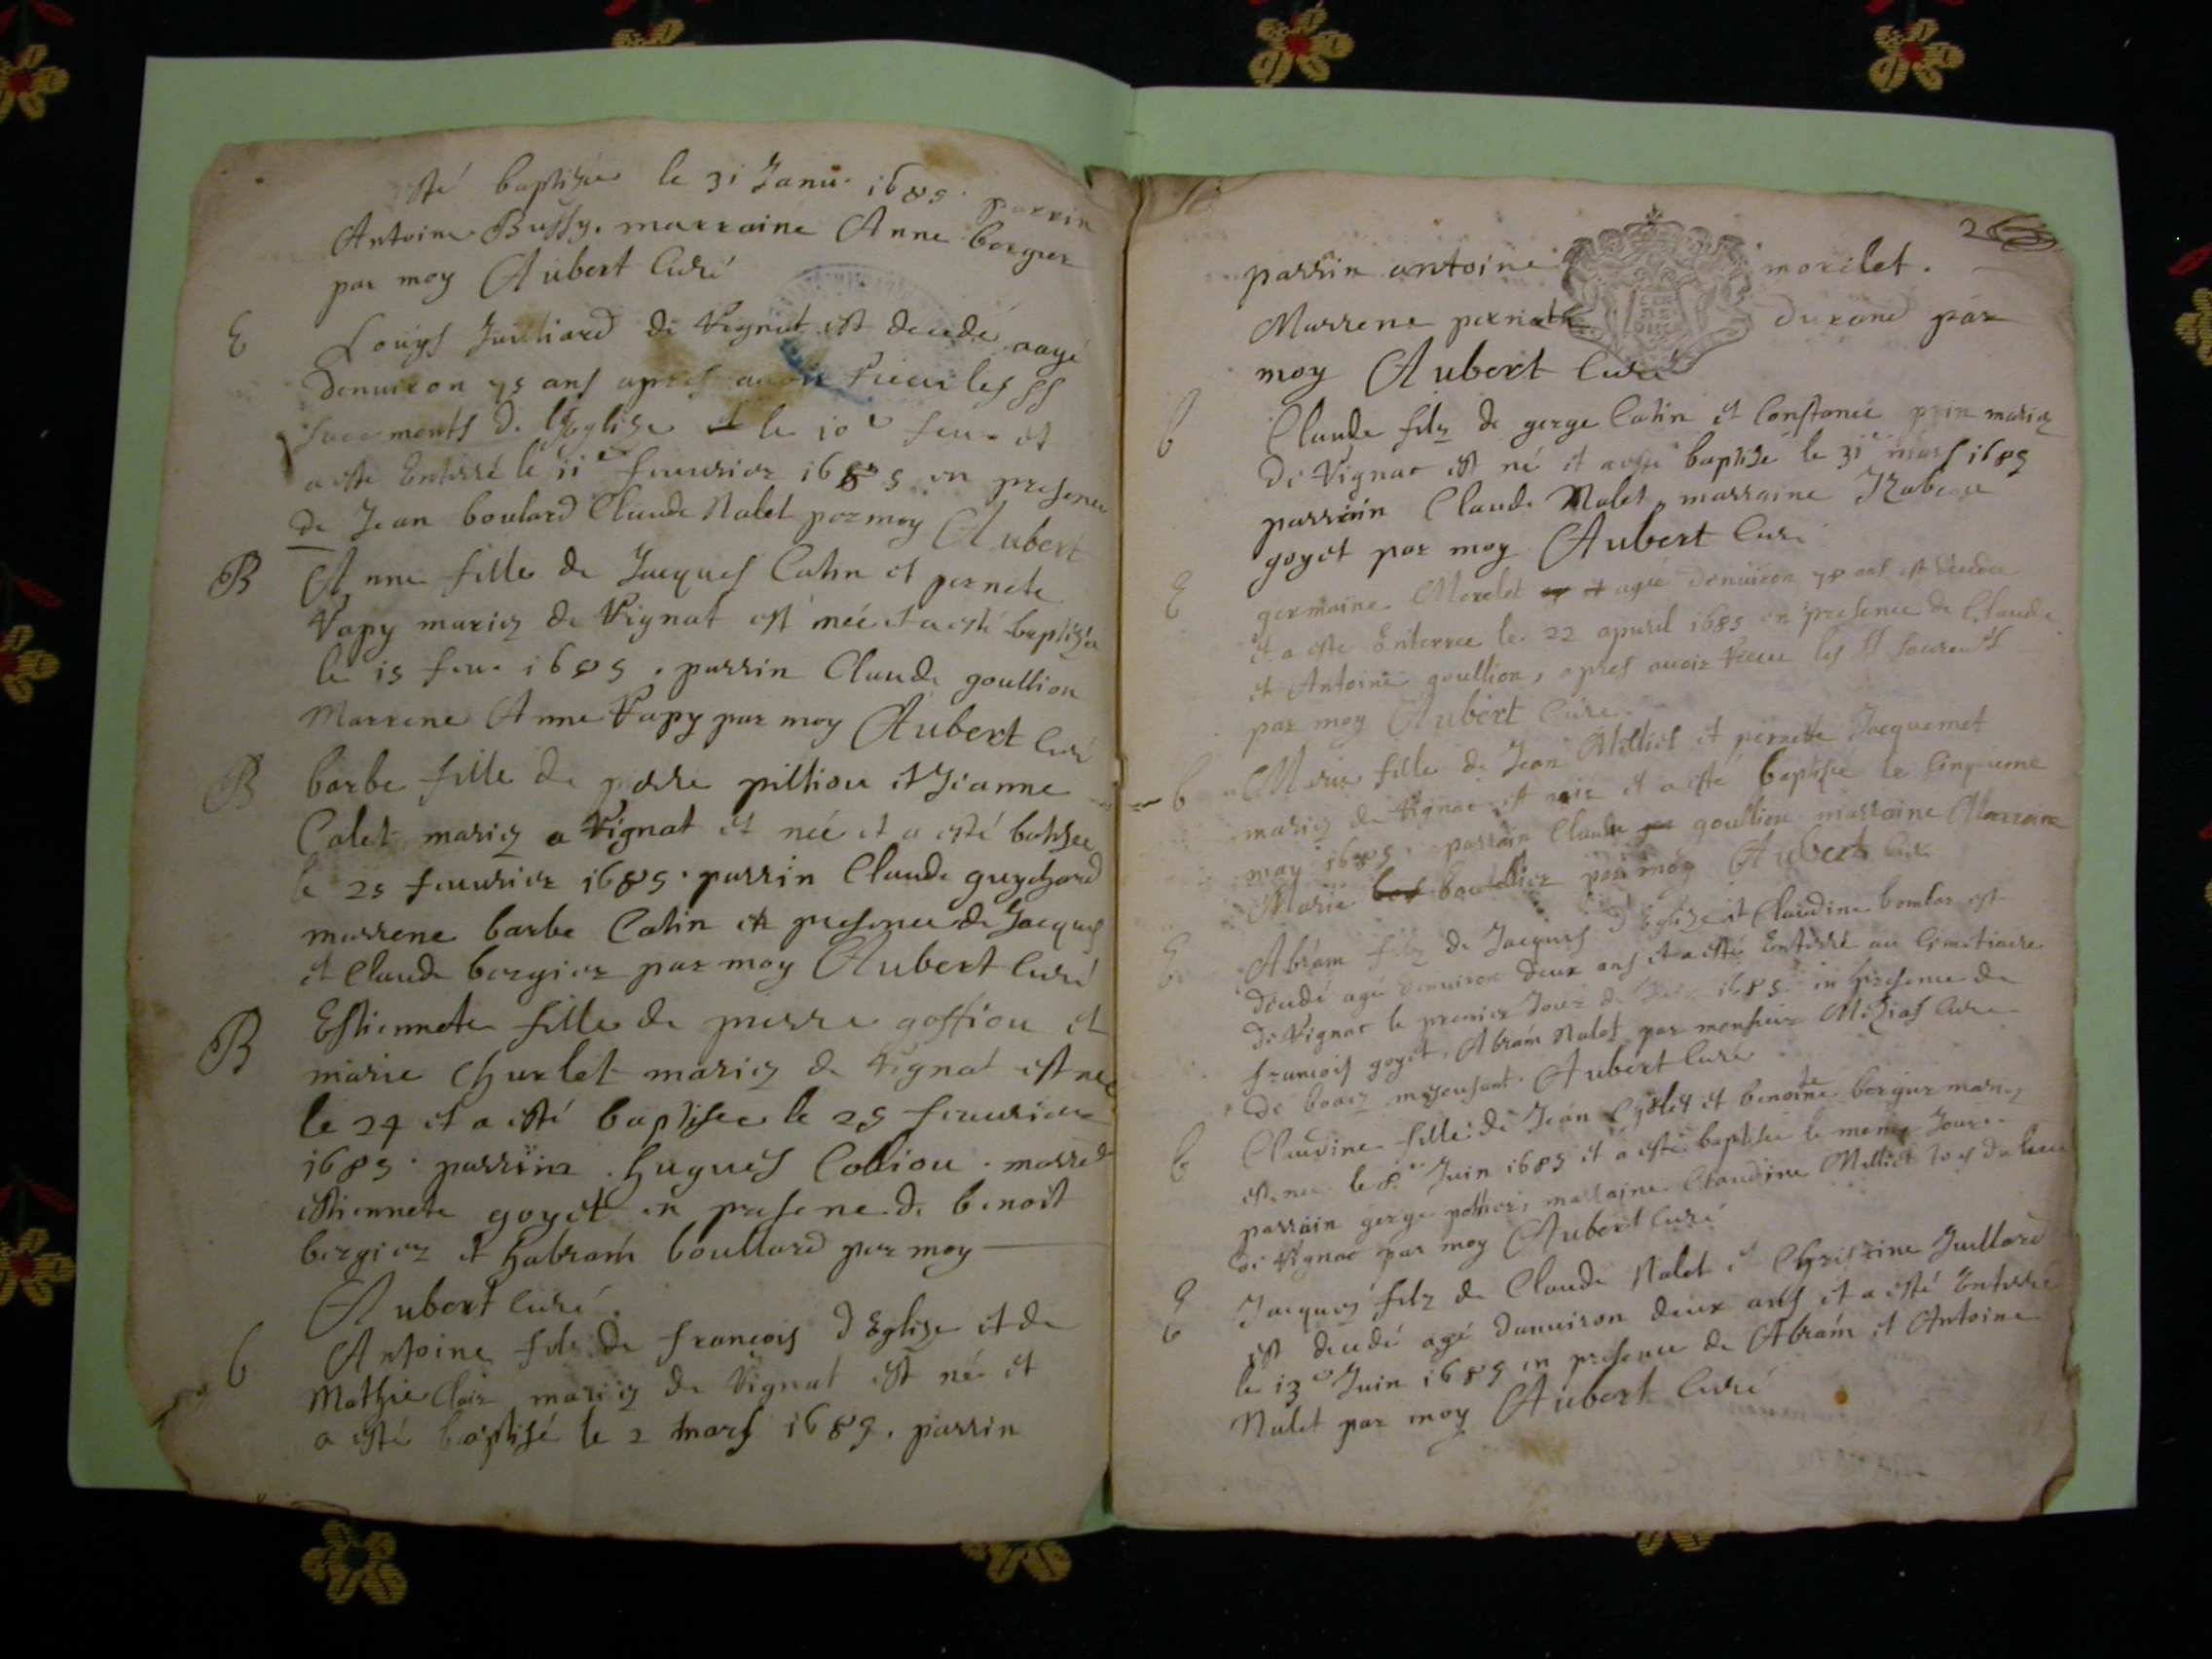 esté baptisée le 31 Janu. 1685. parrin
Antoine Bussy. marraine Anne bergier
par moy Aubert Curé
E
Louys Juilliard de Vignat est decedé aagé
denuiron 75 ans apres auoir receu les SS
sacrements de l'Eglise et le 10e feu. et
a esté Enterré le 11e feuurier 1685 en presence
de Jean boulard Claude Nalet par moy Aubert
B
Anne fille de Jacques Catin et pernete
Vapy mariez de Vignat est née et a esté baptizée
le 15 feu. 1685. parrin Claude goullion
Marrene Anne Vapy par moy Aubert Curé
B
barbe fille de pierre pilliou et Jeanne
Calet mariez a Vignat et née et a esté batisee
le 25 feuurier 1685. parrin Claude guychard
marrene barbe Catin en presence de Jacques
et Claude bergier par moy Aubert Curé
B
Estiennete fille de pierre goffiou et
marie Churlet mariez de Vignat est née
le 24 et a esté baptisee le 25 feuurier
1685. parrin. hugues Colliou. marre
estiennete goyet en presence de benoit
bergier et habram boullard par moy
Aubert Curé.
b
Antoine fils de françois d'Eglise et de
Mathie Clair mariez de Vignat est né et
a esté baptisé le 2 mars 1685. parrin
2
parrin antoine morelet.
Marrene pernete durand par
moy Aubert Curé
b
Claude filz de gerge Catin et Constance prin mariez
de Vignat est né et a esté baptisé le 31e mars 1685
parrain Claude Nalet, marraine Izabeau
goyet par moy Aubert Curé
E
germaine Morelet agée denuiron 78 ans est decedee
et a esté Enterree le 22 apuril 1685 en presence de Claude
et Antoine goullion, apres auoir receu les SS sacrents
par moy Aubert Curé
b
Marie fille de Jean Milliet et pernette Jacquemet
mariez de Vignat est née et a esté baptisée le Cinquieme
may 1685. parrain Claude goullion marraine Marraine
Marie boutellier par moy Aubert Curé
E
Abram filz de Jacques d'Eglize et Claudine boular est
decedé agé denuiron deux ans et a esté Enterré au Cimetiaire
de Vignat le premier Jour de 1685. in presence de
francois goyet, Abram Nalet par monsieur Curé
de moy Aubert Curé
b
Claudine fille de Jean et benoite bergier mariez
est née le 8e Juin 1685 et a esté baptisée le meme Jour
parrain gerge pothier, marraine Claudine Milliet tous du lieu
de Vignat par moy Aubert Curé
E
Jacques filz de Claude Nalet et Christine Juillard
est decedé agé denuiron deux ans et a esté Enterré
le 13e Juin 1685 in presence de Abram et Antoine
Nalet par moy Aubert Curé